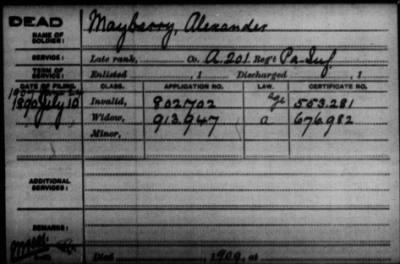 DEAD
NAME OF SOLDIER: Mayberry, Alexander
SERVICE: Late rank, Co. A. 201. Reg't Pa. Inf.
TERM OF SERVICE: Enlisted , 1 Discharged , 1
DATE OF FILING. CLASS. APPLICATION NO. LAW. CERTIFICATE NO.
1890 July 10 Invalid, 802702 553.281
Widow, 913.947 a 676982
Minor,
ADDITIONAL SERVICES:
REMARKS:
Died 1909, at